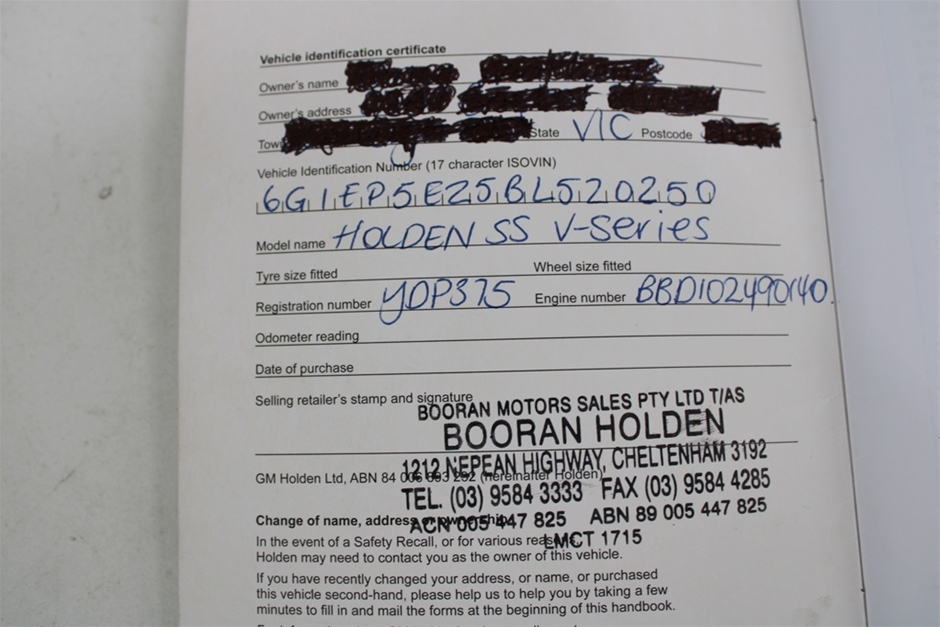 Vehicle identification certificate
Owner's name
Owner's address
State VIC Postcode
Vehicle Identification Number (17 character ISOVIN)
6G1EP5E25BL520250
Model name HOLDEN SS V-Series
Tyre size fitted Wheel size fitted
Registration number YDP375 Engine number BBD102490140
Odometer reading
Date of purchase
Selling retailer's stamp and signature
BOORAN MOTORS SALES PTY LTD T/AS
BOORAN HOLDEN
1212 NEPEAN HIGHWAY, CHELTENHAM 3192
GM Holden Ltd, ABN 84 (hereinafter Holden)
TEL. (03) 9584 3333 FAX (03) 9584 4285
Change of name, address or ownership
ACN 005 447 825 ABN 89 005 447 825
LMCT 1715
In the event of a Safety Recall, or for various reasons,
Holden may need to contact you as the owner of this vehicle.
If you have recently changed your address, or name, or purchased
this vehicle second-hand, please help us to help you by taking a few
minutes to fill in and mail the forms at the beginning of this handbook.